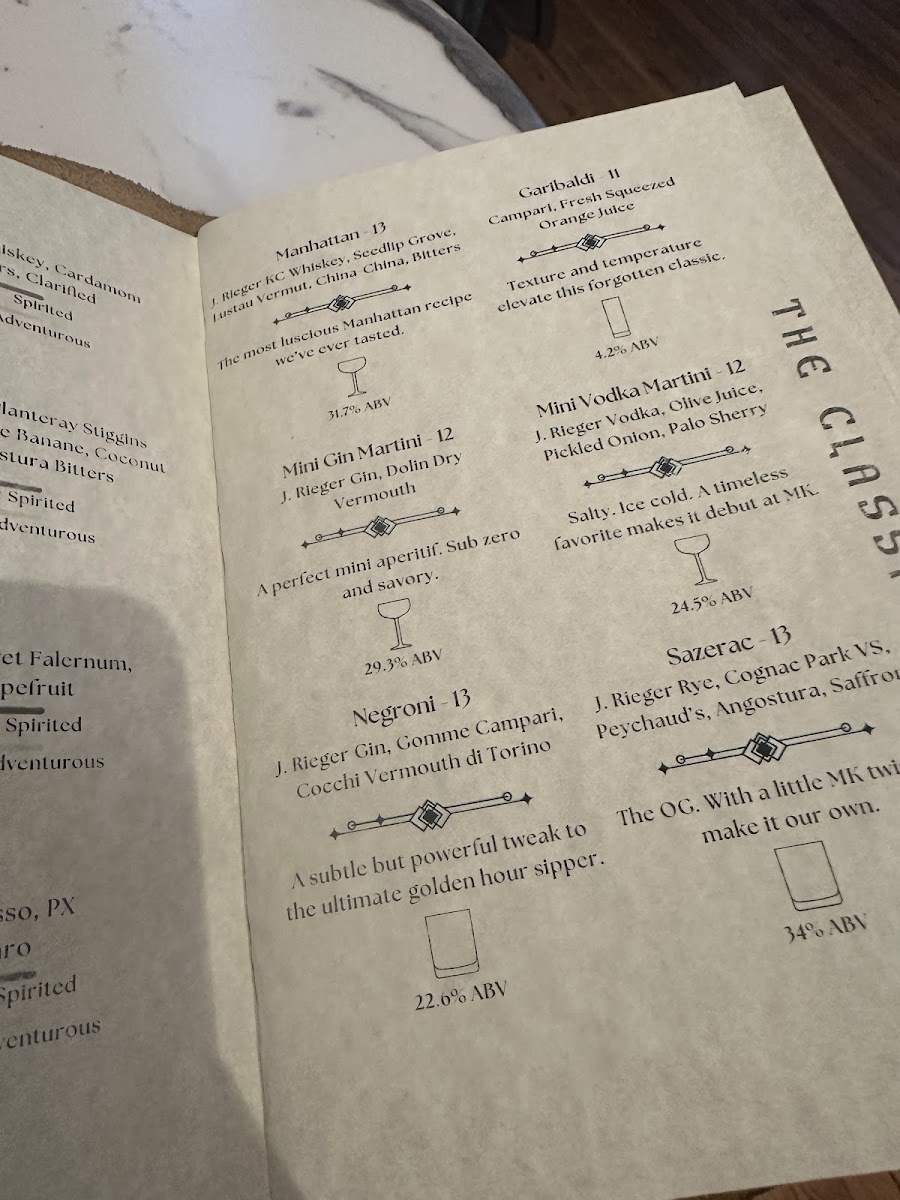 Cardamom
Clarified
Spirited
Adventurous
Stiggins
Banane, Coconut
Bitters
Spirited
Falernum,
Spirited
PX
Spirited
Manhattan - 13
J. Rieger KC Whiskey, Seedlip Grove,
Lustau Vermut, China-China, Bitters
The most luscious Manhattan recipe
we've ever tasted.
31.7% ABV
Garibaldi - 11
Campari, Fresh Squeezed
Orange Juice
Texture and temperature
elevate this forgotten classic.
4.2% ABV
Mini Gin Martini - 12
J. Rieger Gin, Dolin Dry
Vermouth
A perfect mini aperitif. Sub zero
and savory.
29.3% ABV
Mini Vodka Martini - 12
J. Rieger Vodka, Olive Juice,
Pickled Onion, Palo Sherry
Salty. Ice cold. A timeless
favorite makes it debut at MK.
24.5% ABV
Negroni - 13
J. Rieger Gin, Gomme Campari,
Cocchi Vermouth di Torino
A subtle but powerful tweak to
the ultimate golden hour sipper.
22.6% ABV
Sazerac - 13
J. Rieger Rye, Cognac Park VS,
Peychaud's, Angostura,
The OG. With a little MK
make it our own.
34% ABV
THE